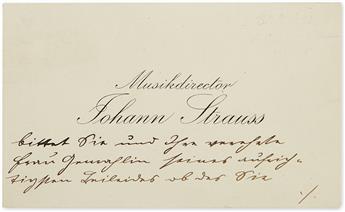 Musikdirector
Johann Strauss
bittet Sie und Ihre verehrte
Frau Gemahlin seines aufrich-
tigsten Beileides ob des Sie
./.